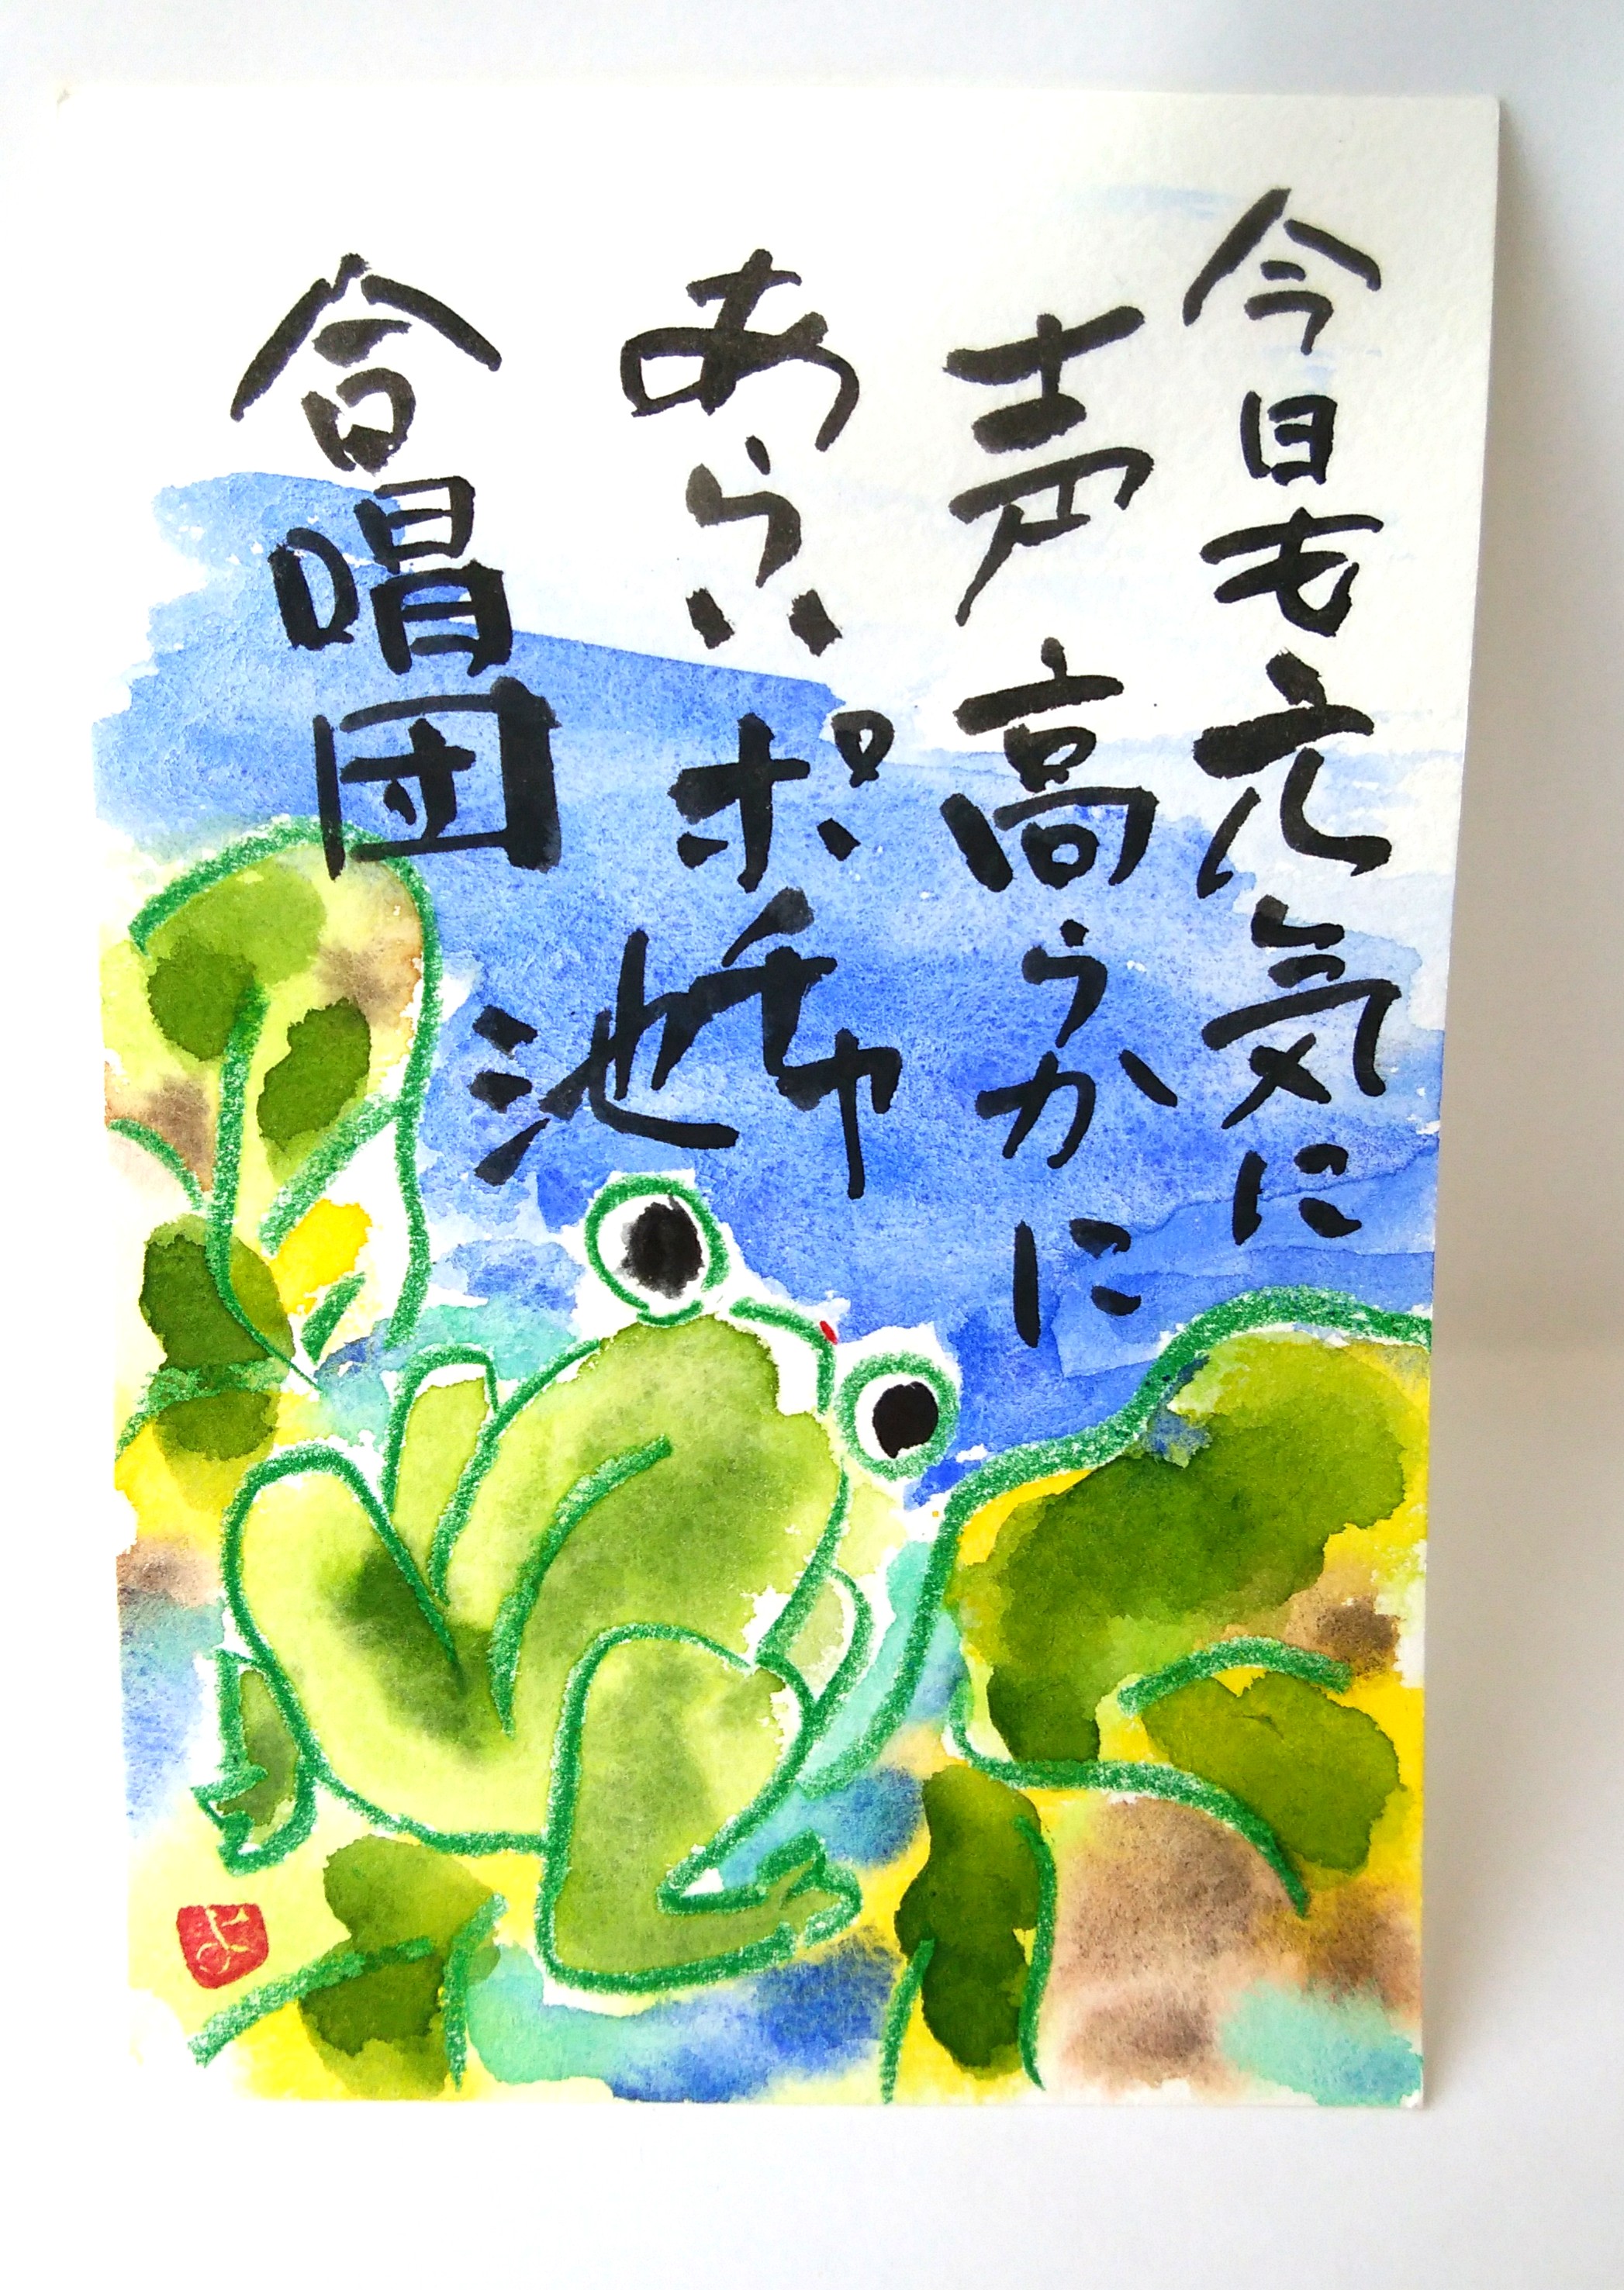 今日も元気に
声高らかに
あらいポチャ池
合唱団
よ